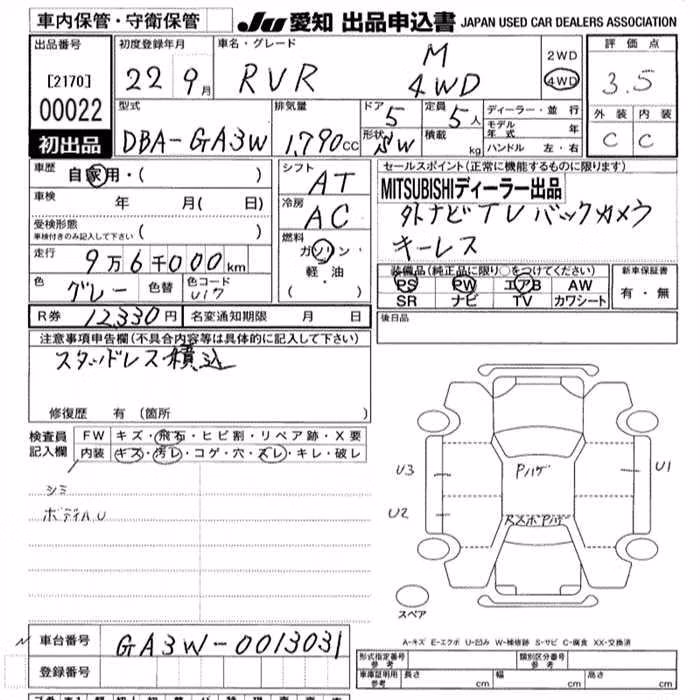 車内保管・守衛保管 JU 愛知 出品申込書 JAPAN USED CAR DEALERS ASSOCIATION
出品番号 初度登録年月 車名・グレード 評価点
[2170] 22 9月 RVR M 4WD 2WD 4WD 3.5
00022 型式 排気量 ドア 5 定員 5人 ディーラー・並行 外装 内装
初出品 DBA-GA3W 1,790cc 形状 SW 積載 kg モデル年式 年 C C
ハンドル 左・右
車歴 自家用・( ) シフト AT セールスポイント(正常に機能するものに限ります)
車検 年 月( 日) 冷房 AC MITSUBISHIディーラー出品
受検形態 ( ) 外ナビTVバックカメラ
車検付きのみ記入して下さい
走行 9万6千000km 燃料 ガソリン・軽油・( ) キーレス
色 グレー 色替 色コード U17 装備品(純正品に限り○をつけてください) 新車保証書
PS PW エアB AW 有・無
SR ナビ TV カワシート
R券 12,330円 名変通知期限 月 日 後日品
注意事項申告欄(不具合内容等は具体的に記入して下さい)
スタッドレス積込
修復歴 有(箇所 )
検査員記入欄 FW キズ・飛石・ヒビ割・リペア跡・X要
内装 キズ・汚レ・コゲ・穴・スレ・キレ・破レ
シミ
ボディAU
U3 Pハゲ U1
U2 RメホPハゲ
スペア
A-キズ E-エクボ U-凹み W-補修跡 S-サビ C-腐食 XX-交換済
車台番号 GA3W-0013031
登録番号
形式指定番号 参考 類別区分番号 参考
車庫証明用 参考 長さ cm 幅 cm 高さ cm